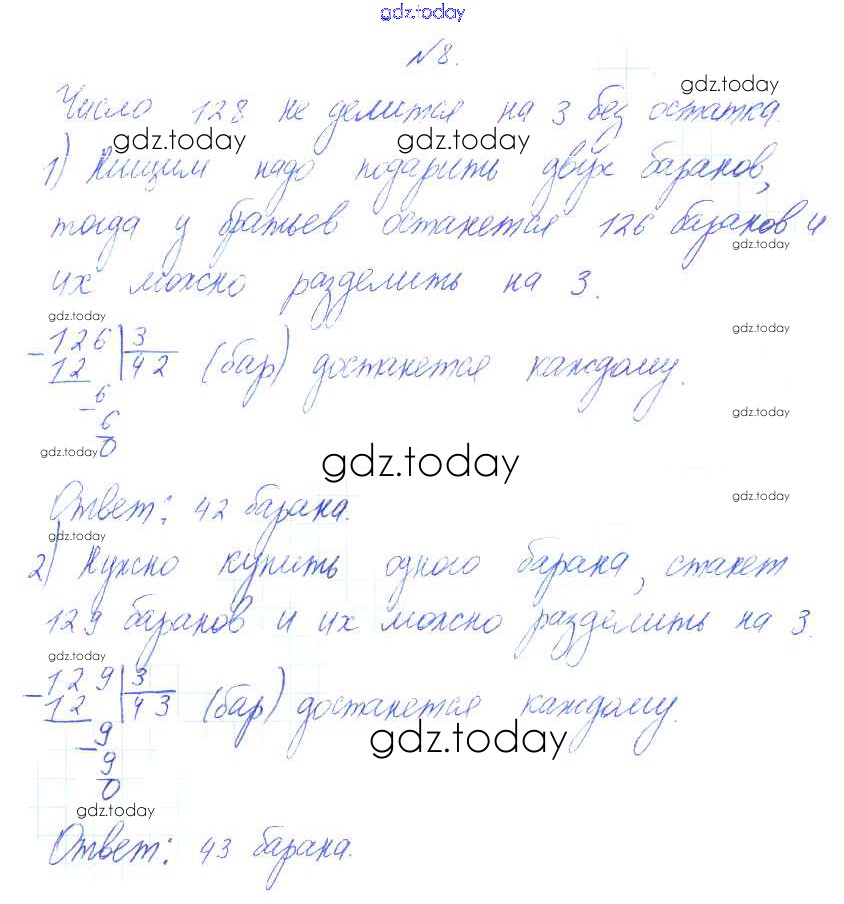 gdz.today
№8.
gdz.today
Число 128 не делится на 3 без остатка.
gdz.today gdz.today
1) Нищим надо подарить двух баранов,
тогда у братьев останется 126 баранов и
gdz.today
их можно разделить на 3.
gdz.today
gdz.today
- 126 | 3
12 | 42 (бар) достанется каждому.
- 6
gdz.today
6
gdz.today 0
gdz.today
gdz.today
Ответ: 42 барана.
gdz.today
2) Нужно купить одного барана, станет
129 баранов и их можно разделить на 3.
gdz.today
- 129 | 3
12 | 43 (бар) достанется каждому.
- 9
gdz.today
9
0
gdz.today
Ответ: 43 барана.